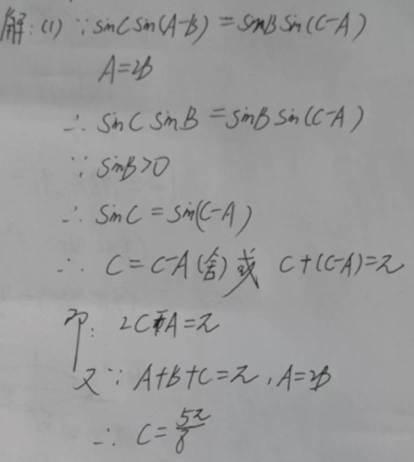 解:(1) ∵ sinCsin(A-B) = sinBsin(C-A)
A=2B
∴ sinCsinB = sinBsin(C-A)
∵ sinB>0
∴ sinC = sin(C-A)
∴ C = C-A (舍) 或 C+(C-A)=π
即: 2C-A=π
又∵ A+B+C=π, A=2B
∴ C=5π/8